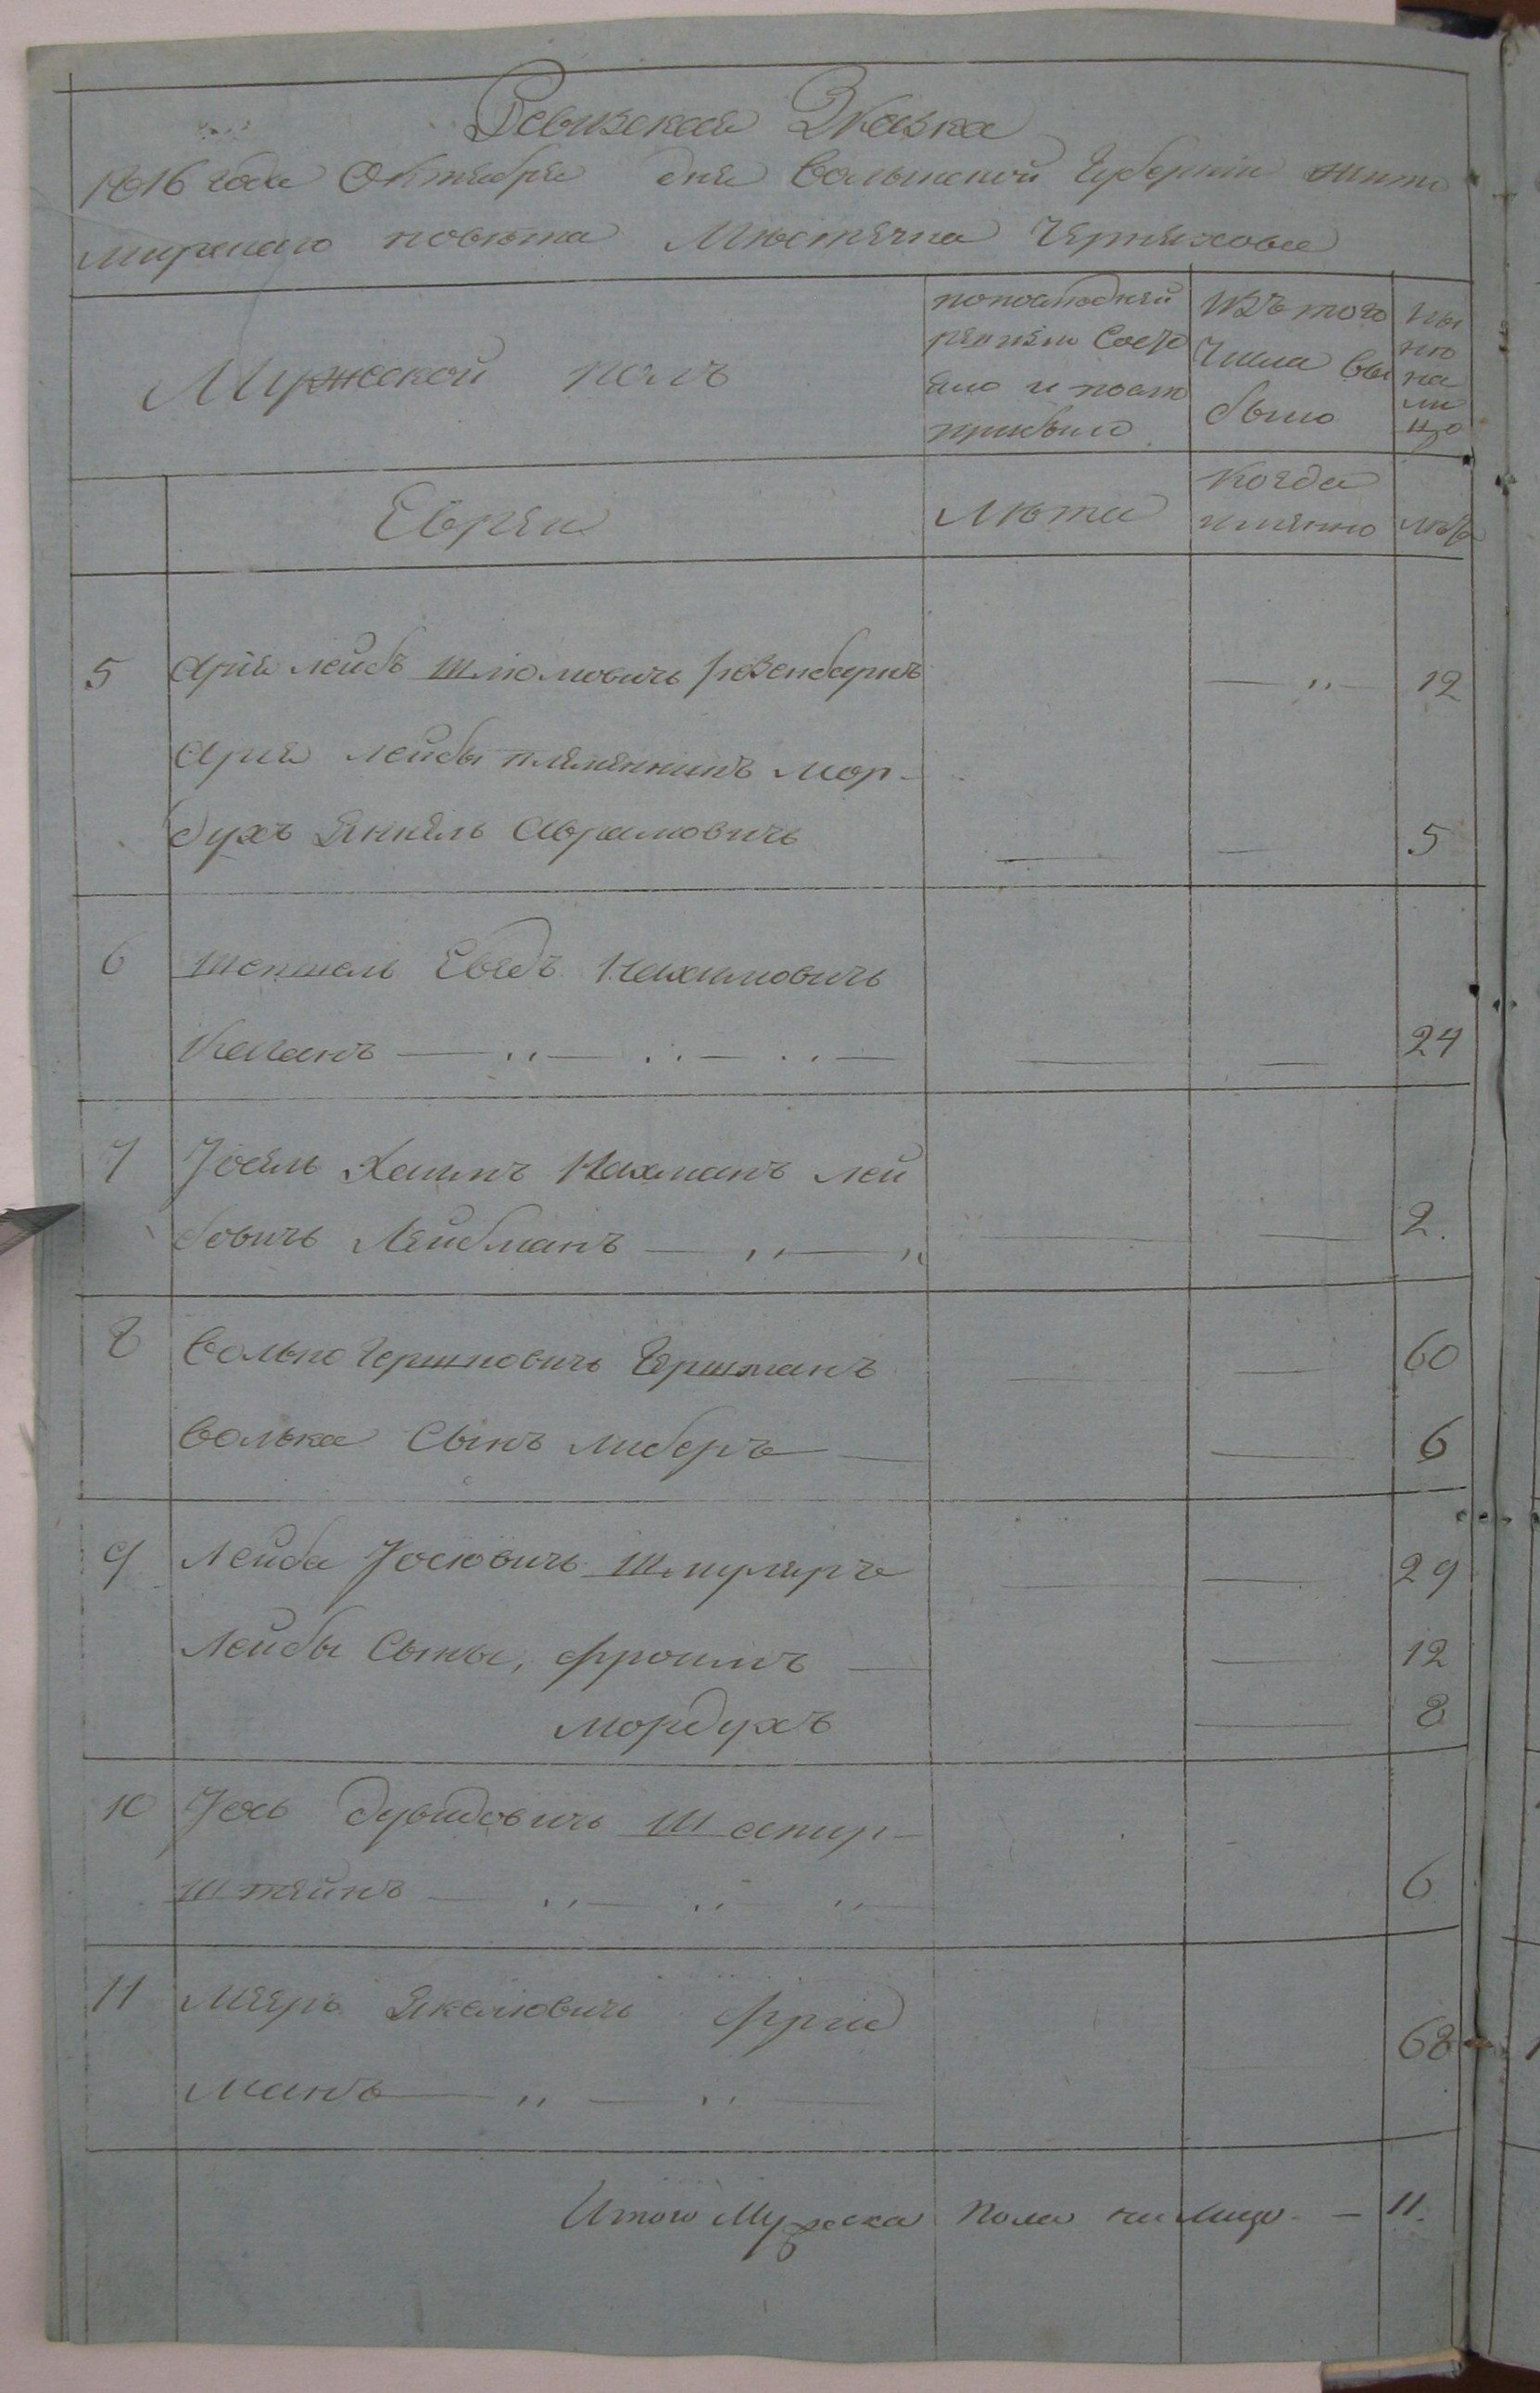 Ревизская Зказка
1816 года Октября дня Волынской Губернiи Жито
мирскаго повѣта Мѣстечка Черняхова
Мужеской полъ
попослѣдней
ревизiи состо
яло и посл
прибыло
Изъ того
Числа вы
было
Ны
нѣ
на
ли
цо
Евреи
Лѣта
Когда
имянно
лѣтъ
5 Арiя Лейбъ Шлiомовичь Розенбаумъ — „ — 12
Арiя Лейбы племянникъ Мор-
духъ Янкель Аврамовичь — — 5
6 Шепшель Нахимовичь
Каганъ — „ — „ — „ — — — 24
7 Iосель Хаимъ Нахманъ Лей
бовичь Лейбманъ — „ — „ — — 2.
8 Волько Гершковичь Гершманъ — — 60
Волька Сынъ Либеръ — — 6
9 Лейба Iосiовичь Шпулеръ — — 29
Лейбы Сыны, Фроимъ — — 12
Мордухъ — 8
10 Iось Дувидовичь Шапир-
штейнъ — „ — „ — „ — 6
11 Мееръ Фрид
манъ — „ — „ — 68
Итого Мужеска Пола на Лицо — 11.